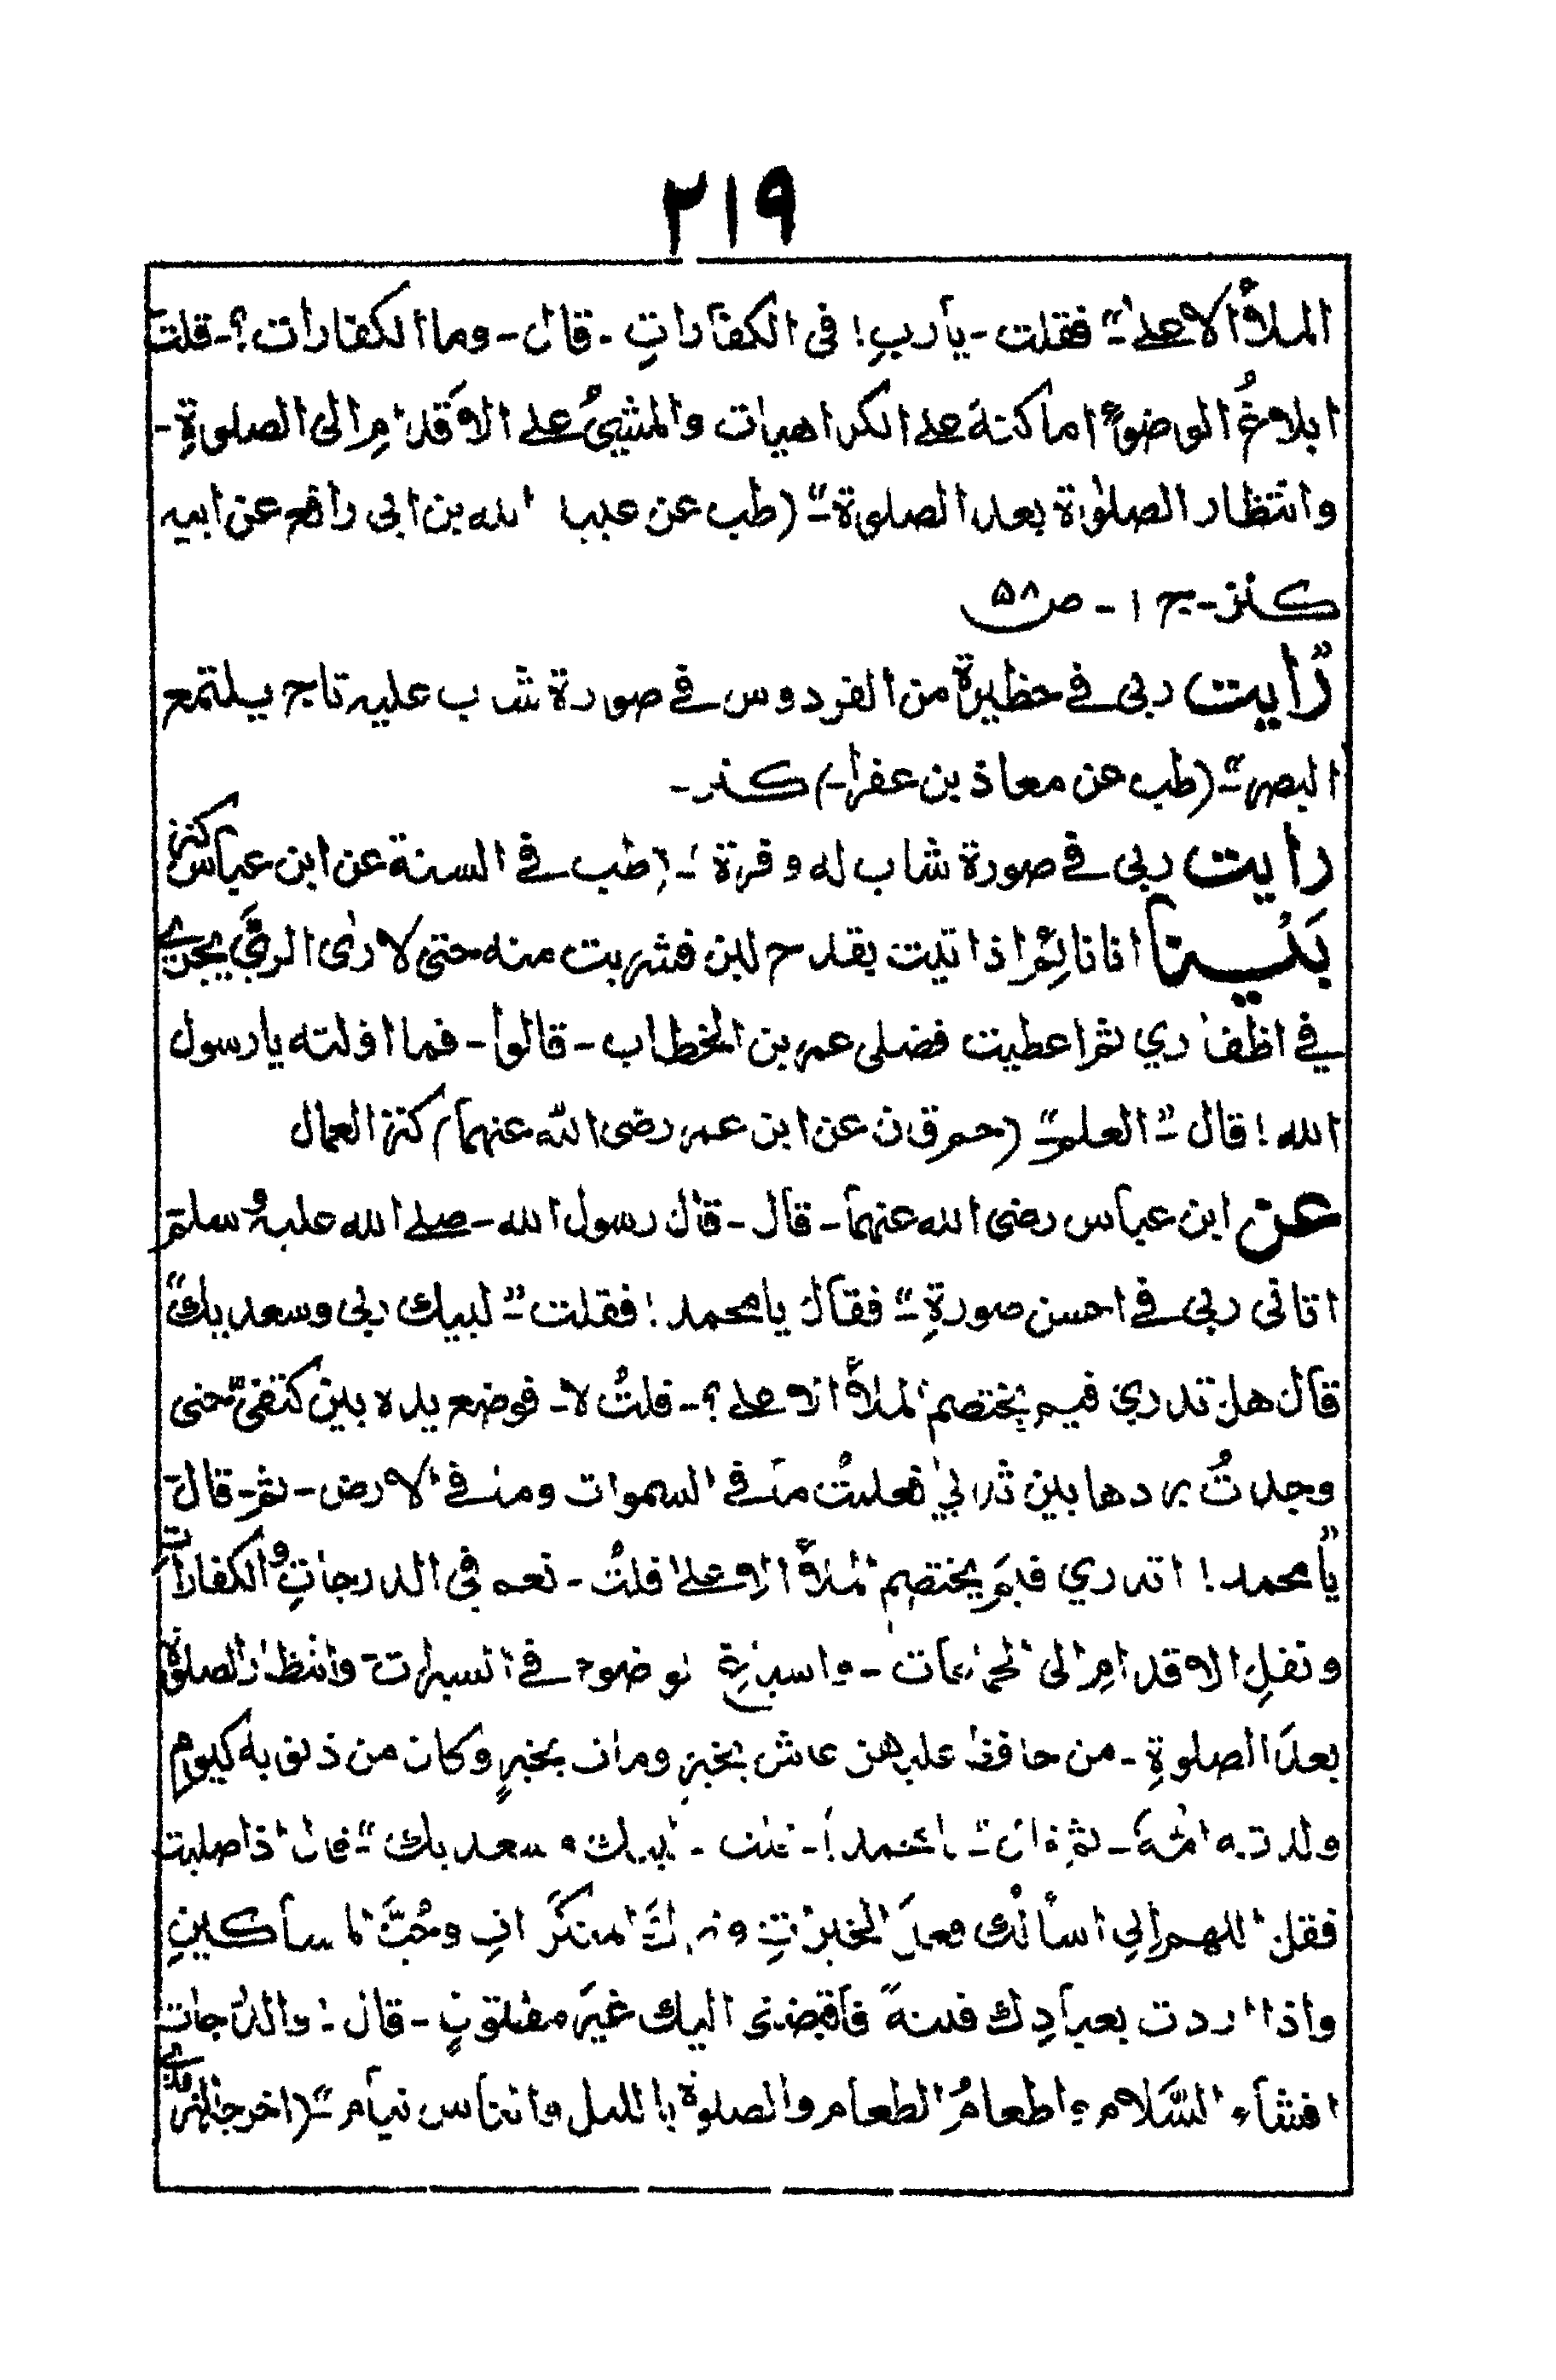 ۲۱۹
الملأ الاعلےٰ" فقلت - یارب! فی الکفاراتِ - قال - وما الکفارات؟ - قلت
ابلاغُ الوضوءِ اماکنهٗ علے الکراهیات والمشیُ علے الاَقدامِ الی الصلوةِ -
وانتظار الصلوٰة بعد الصلوة" (طب عن عبید الله بن ابی رافع عن ابیه
کنز - ج ۱ - ص ۵۸
"رایت ربی فے حظیرة من الفردوس فے صورة شاب علیه تاج یلتمع
البصر" - (طب عن معاذ بن عفراء) کنز -
رایت ربی فے صورة شاب له وفرة - (طب فے السنة عن ابن عباس کنز
بَیْنَا انا نائمٌ اذ اتیت بقدح لبن فشربت منه حتی لاریٰ الریَّ یجری
فے اظفاری ثم اعطیت فضلی عمر بن الخطاب - قالوا - فما اولته یارسول
الله! قال "العلم" (حم ق ن عن ابن عمر رضی الله عنهما) کنز العمال
عن ابن عباس رضی الله عنهما - قال - قال رسول الله - صلے الله علیه وسلم
اتانی ربی فے احسن صورةِ" فقال یامحمد! فقلت" لبیك ربی وسعدیك"
قال هل تدری فیم یختصم الملأ الاعلے؟ - قلتُ لا - فوضع یده بین کتفیَّ حتی
وجدتُ بردها بین ثدیی فعلمتُ ما فے السموات وما فے الارض - ثم - قال
"یامحمد! اتدری فیم یختصم الملأ الاعلے قلتُ - نعم فی الدرجاتِ والکفارات
ونقلِ الاقدامِ الی الجماعات - واسباغ الوضوء فے السبرات وانتظار الصلوة
بعدَ الصلوةِ - من حافظ علیهن عاش بخیرٍ ومات بخیرٍ وکان من ذنوبه کیوم
ولدته امُّه - ثم قال" یامحمد! - قلت - لبیك وسعدیك" قال اذا صلیت
فقل اللهم انی اسألك فعلَ الخیراتِ وترك المنکراتِ وحُبَّ المساکینِ
واذا اردت بعبادِك فتنةً فاقبضنی الیك غیرَ مفتونٍ - قال: والدرجات
افشاء السَّلام واطعامُ الطعام والصلوة باللیل والناس نیام" - (اخرجه الترمذی